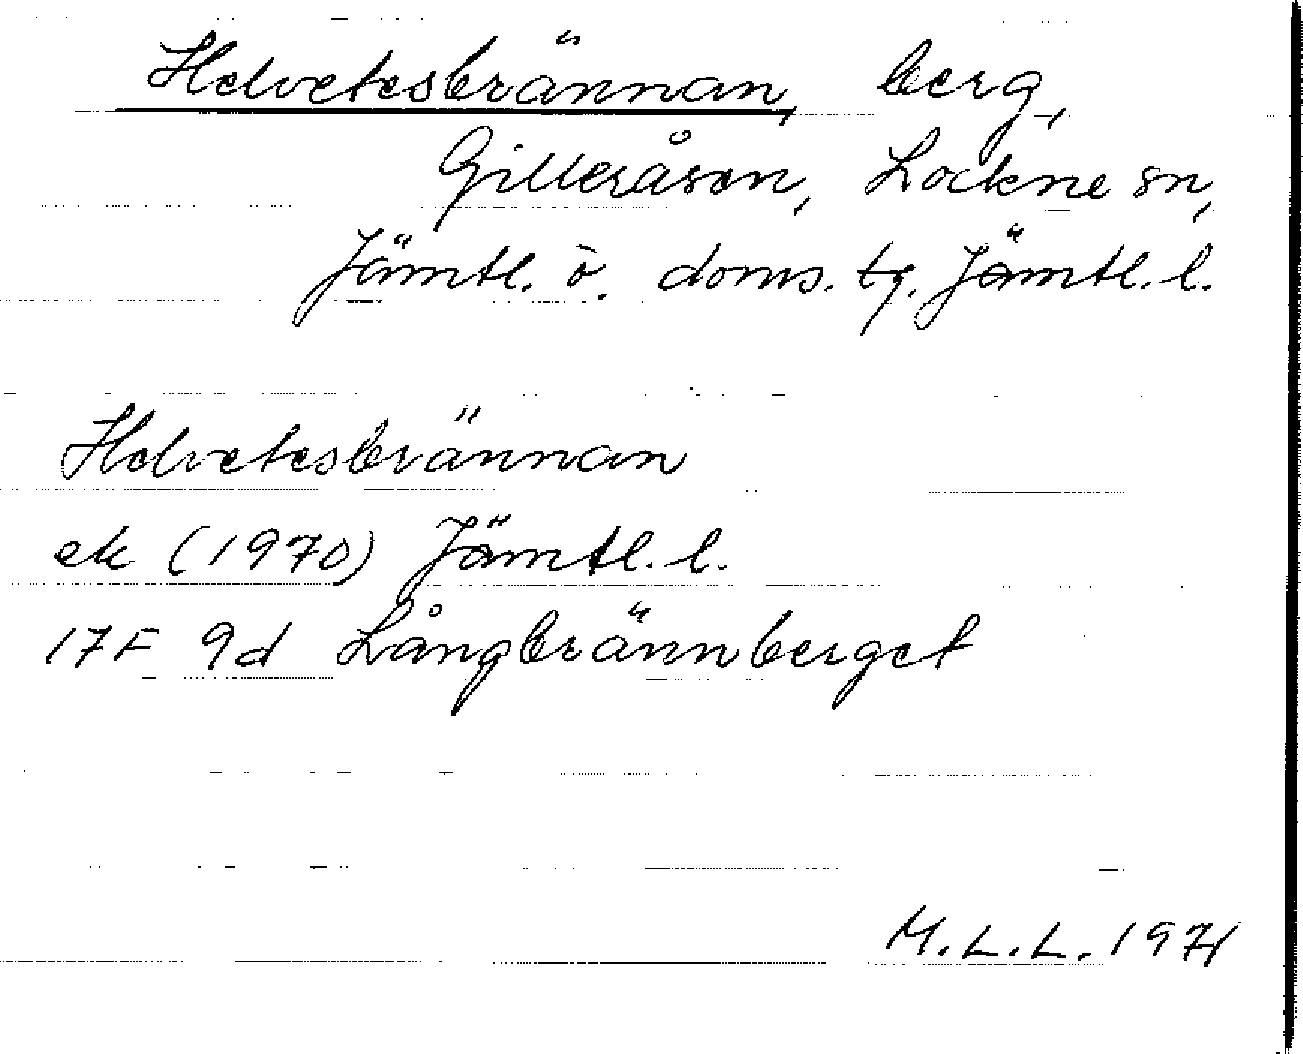 Helvetesbrännan, berg,
Gilleråsen, Lockne sn,
Jämtl. ö. doms. tg. Jämtl. l.
Helvetesbrännan
ek (1970) Jämtl. l.
17F 9d Långbrännberget
M.L.L. 1971